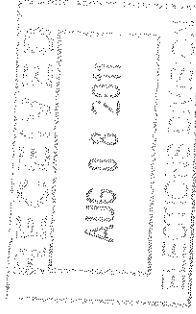 RECEIVED
AUG 08 2011
ELECTIONS DIVISION